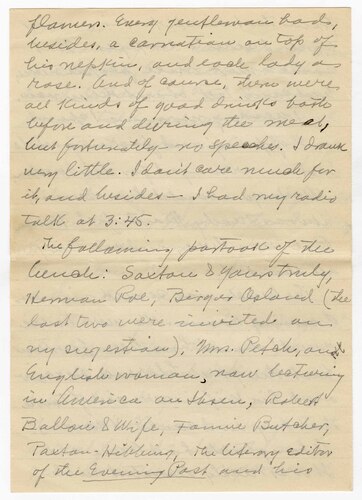 flowers. Every gentleman had,
besides, a carnation on top of
his napkin, and each lady a
rose. And of course, there were
all kinds of good drinks both
before and during the meal,
but fortunately no speeches. I drank
very little. I don't care much for
it, and besides — I had my radio
talk at 3:45.
The following partook of the
lunch: Saxton & Yours truly,
Herman Roe, Birger Osland (the
last two were invited on
my sugestion), Mrs. Petch, an
English woman, now lecturing
in America on Ibsen, Robert
Ballou & Wife, Fannie Butcher,
Paxton-Hibbing, The literary editor
of the Evening Post and his